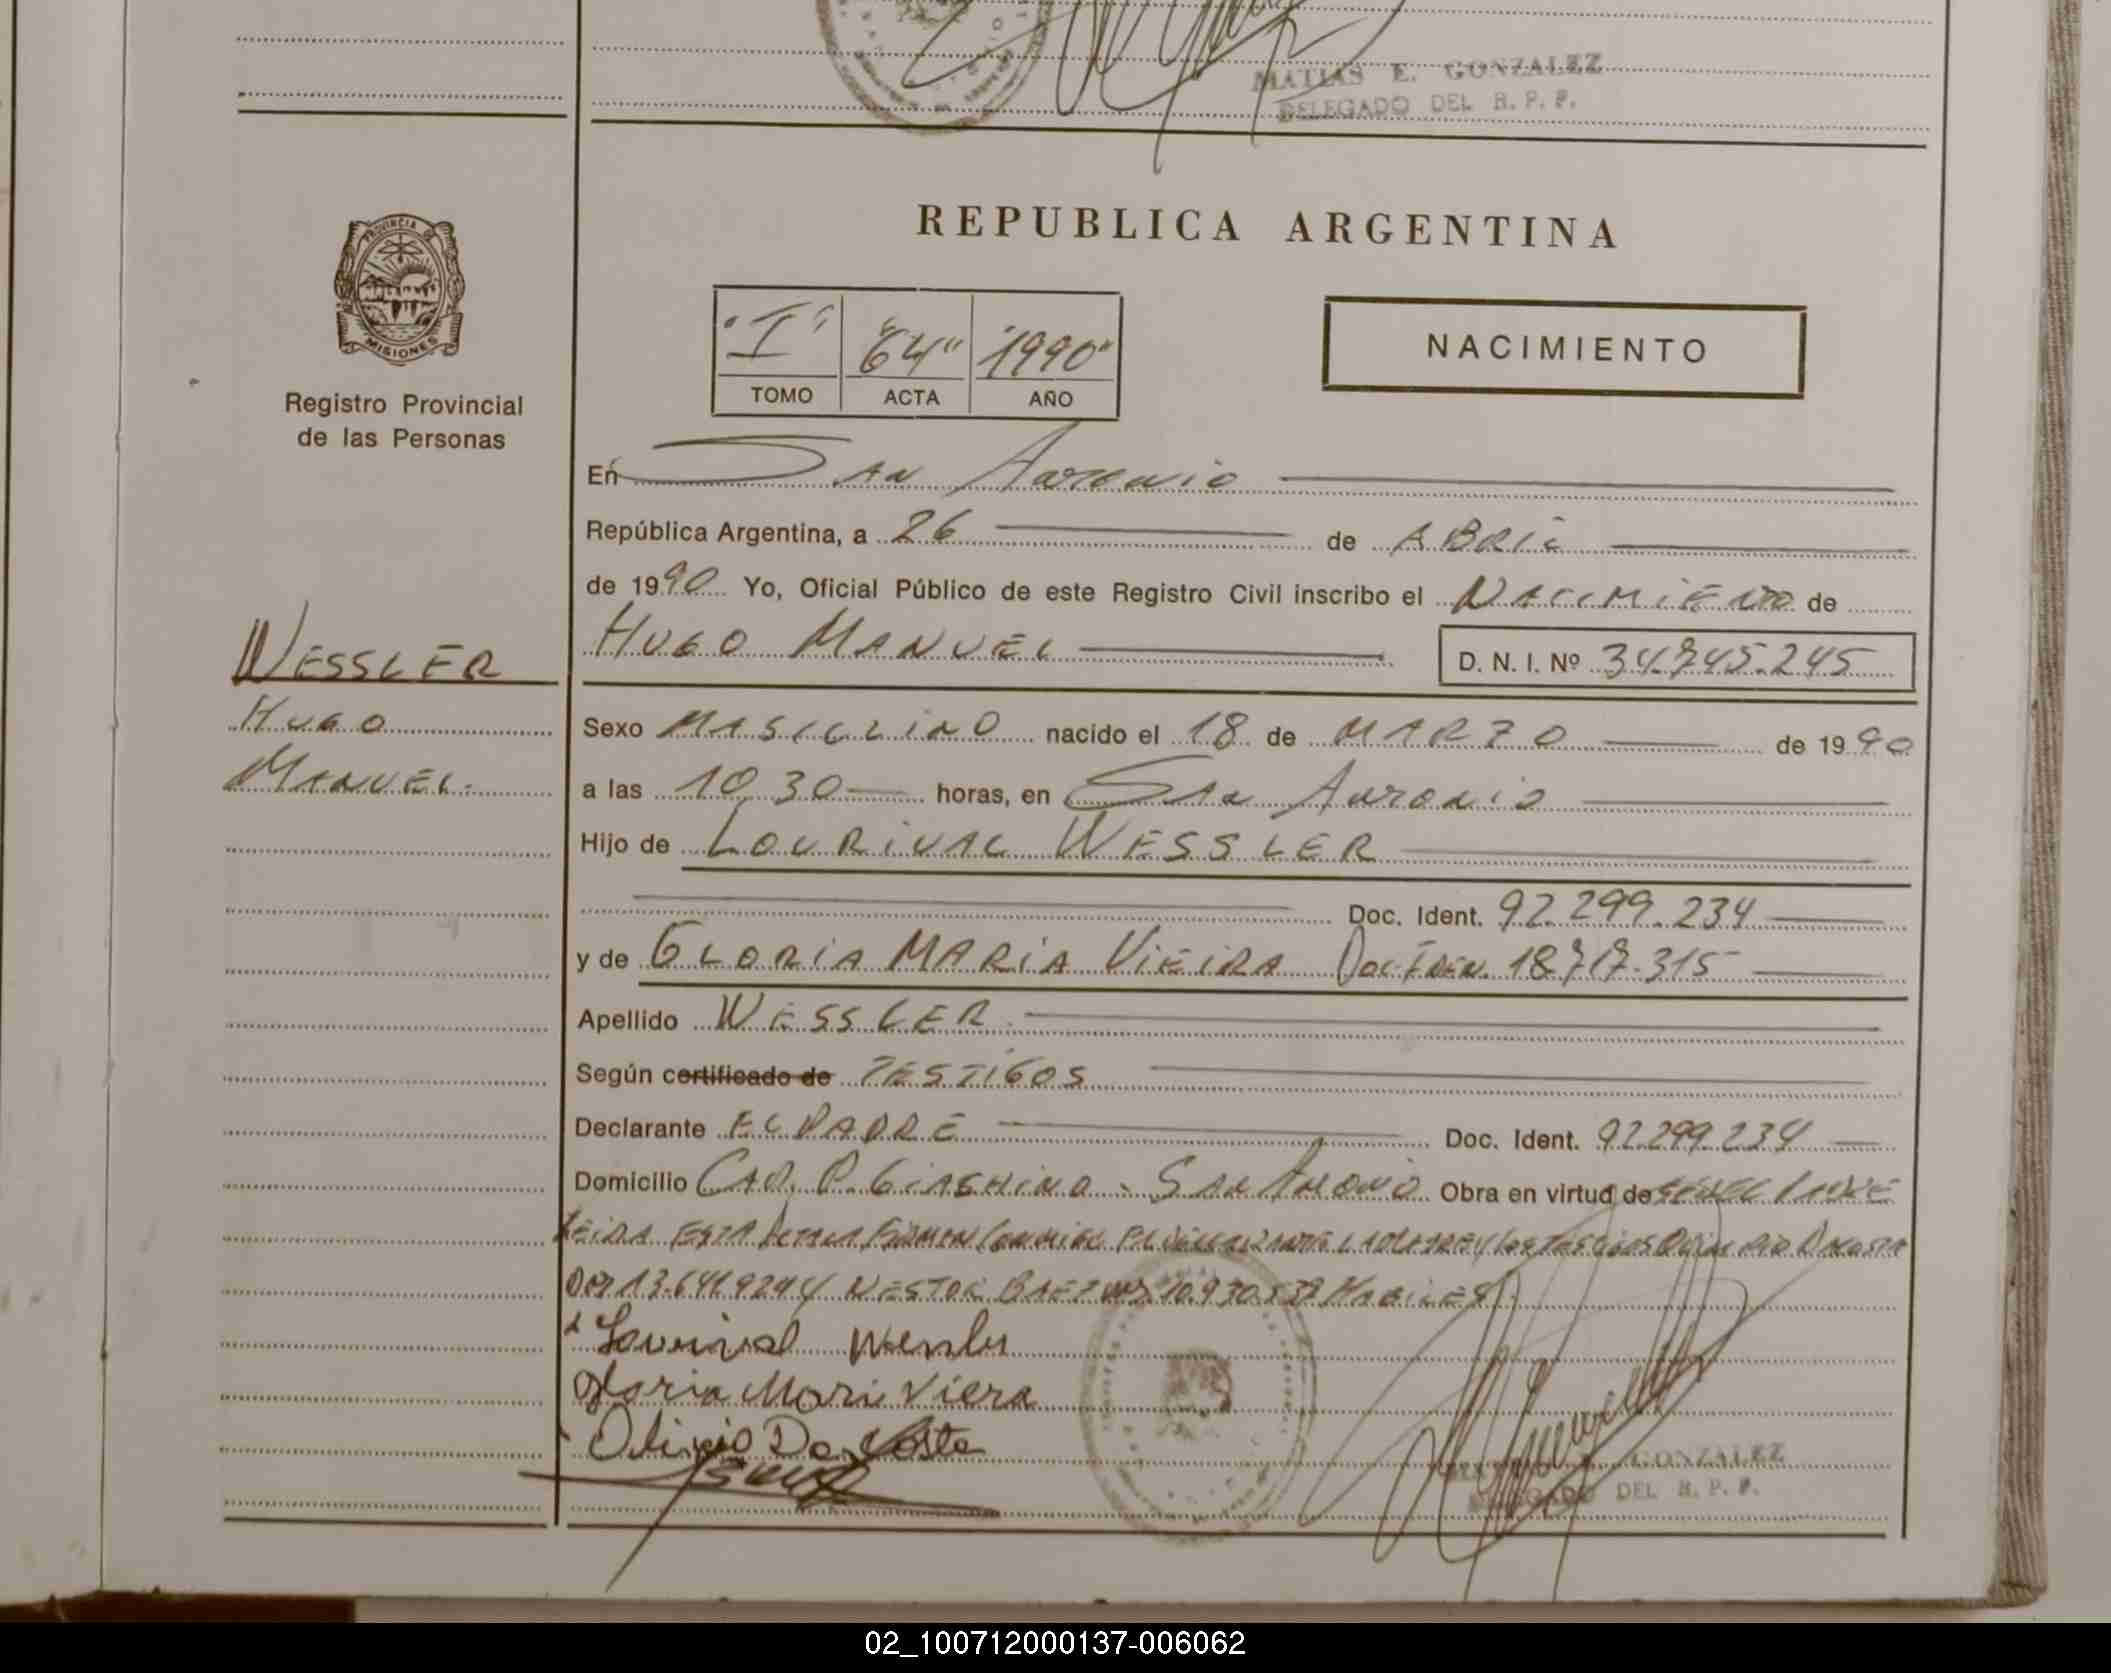 MATIAS E. GONZALEZ
DELEGADO DEL R. P. P.
PROVINCIA DE
MISIONES
Registro Provincial
de las Personas
REPUBLICA ARGENTINA
"I" "64" "1990"
TOMO ACTA AÑO
NACIMIENTO
En San Antonio
República Argentina, a 26 de ABRIL
de 1990 Yo, Oficial Público de este Registro Civil inscribo el NACIMIENTO de
HUGO MANUEL D. N. I. Nº 34.745.245
WESSLER
HUGO
MANUEL.
Sexo MASCULINO nacido el 18 de MARZO de 1990
a las 10 30 horas, en San Antonio
Hijo de LOURIVAL WESSLER
Doc. Ident. 92.299.234
y de GLORIA MARIA VIEIRA Doc. Iden. 18.717.315
Apellido WESSLER
Según certificado de TESTIGOS
Declarante EL PADRE Doc. Ident. 92.299.234
Domicilio P. San Antonio Obra en virtud de
LEIDA ESTA FIRMAN
13.641.924 Y NESTOR BAEZ 10.930.537 HABILES.
Lourival Wessler
Gloria Mari Viera
Olirio Da Costa
GONZALEZ
DELEGADO DEL R. P. P.
02_100712000137-006062